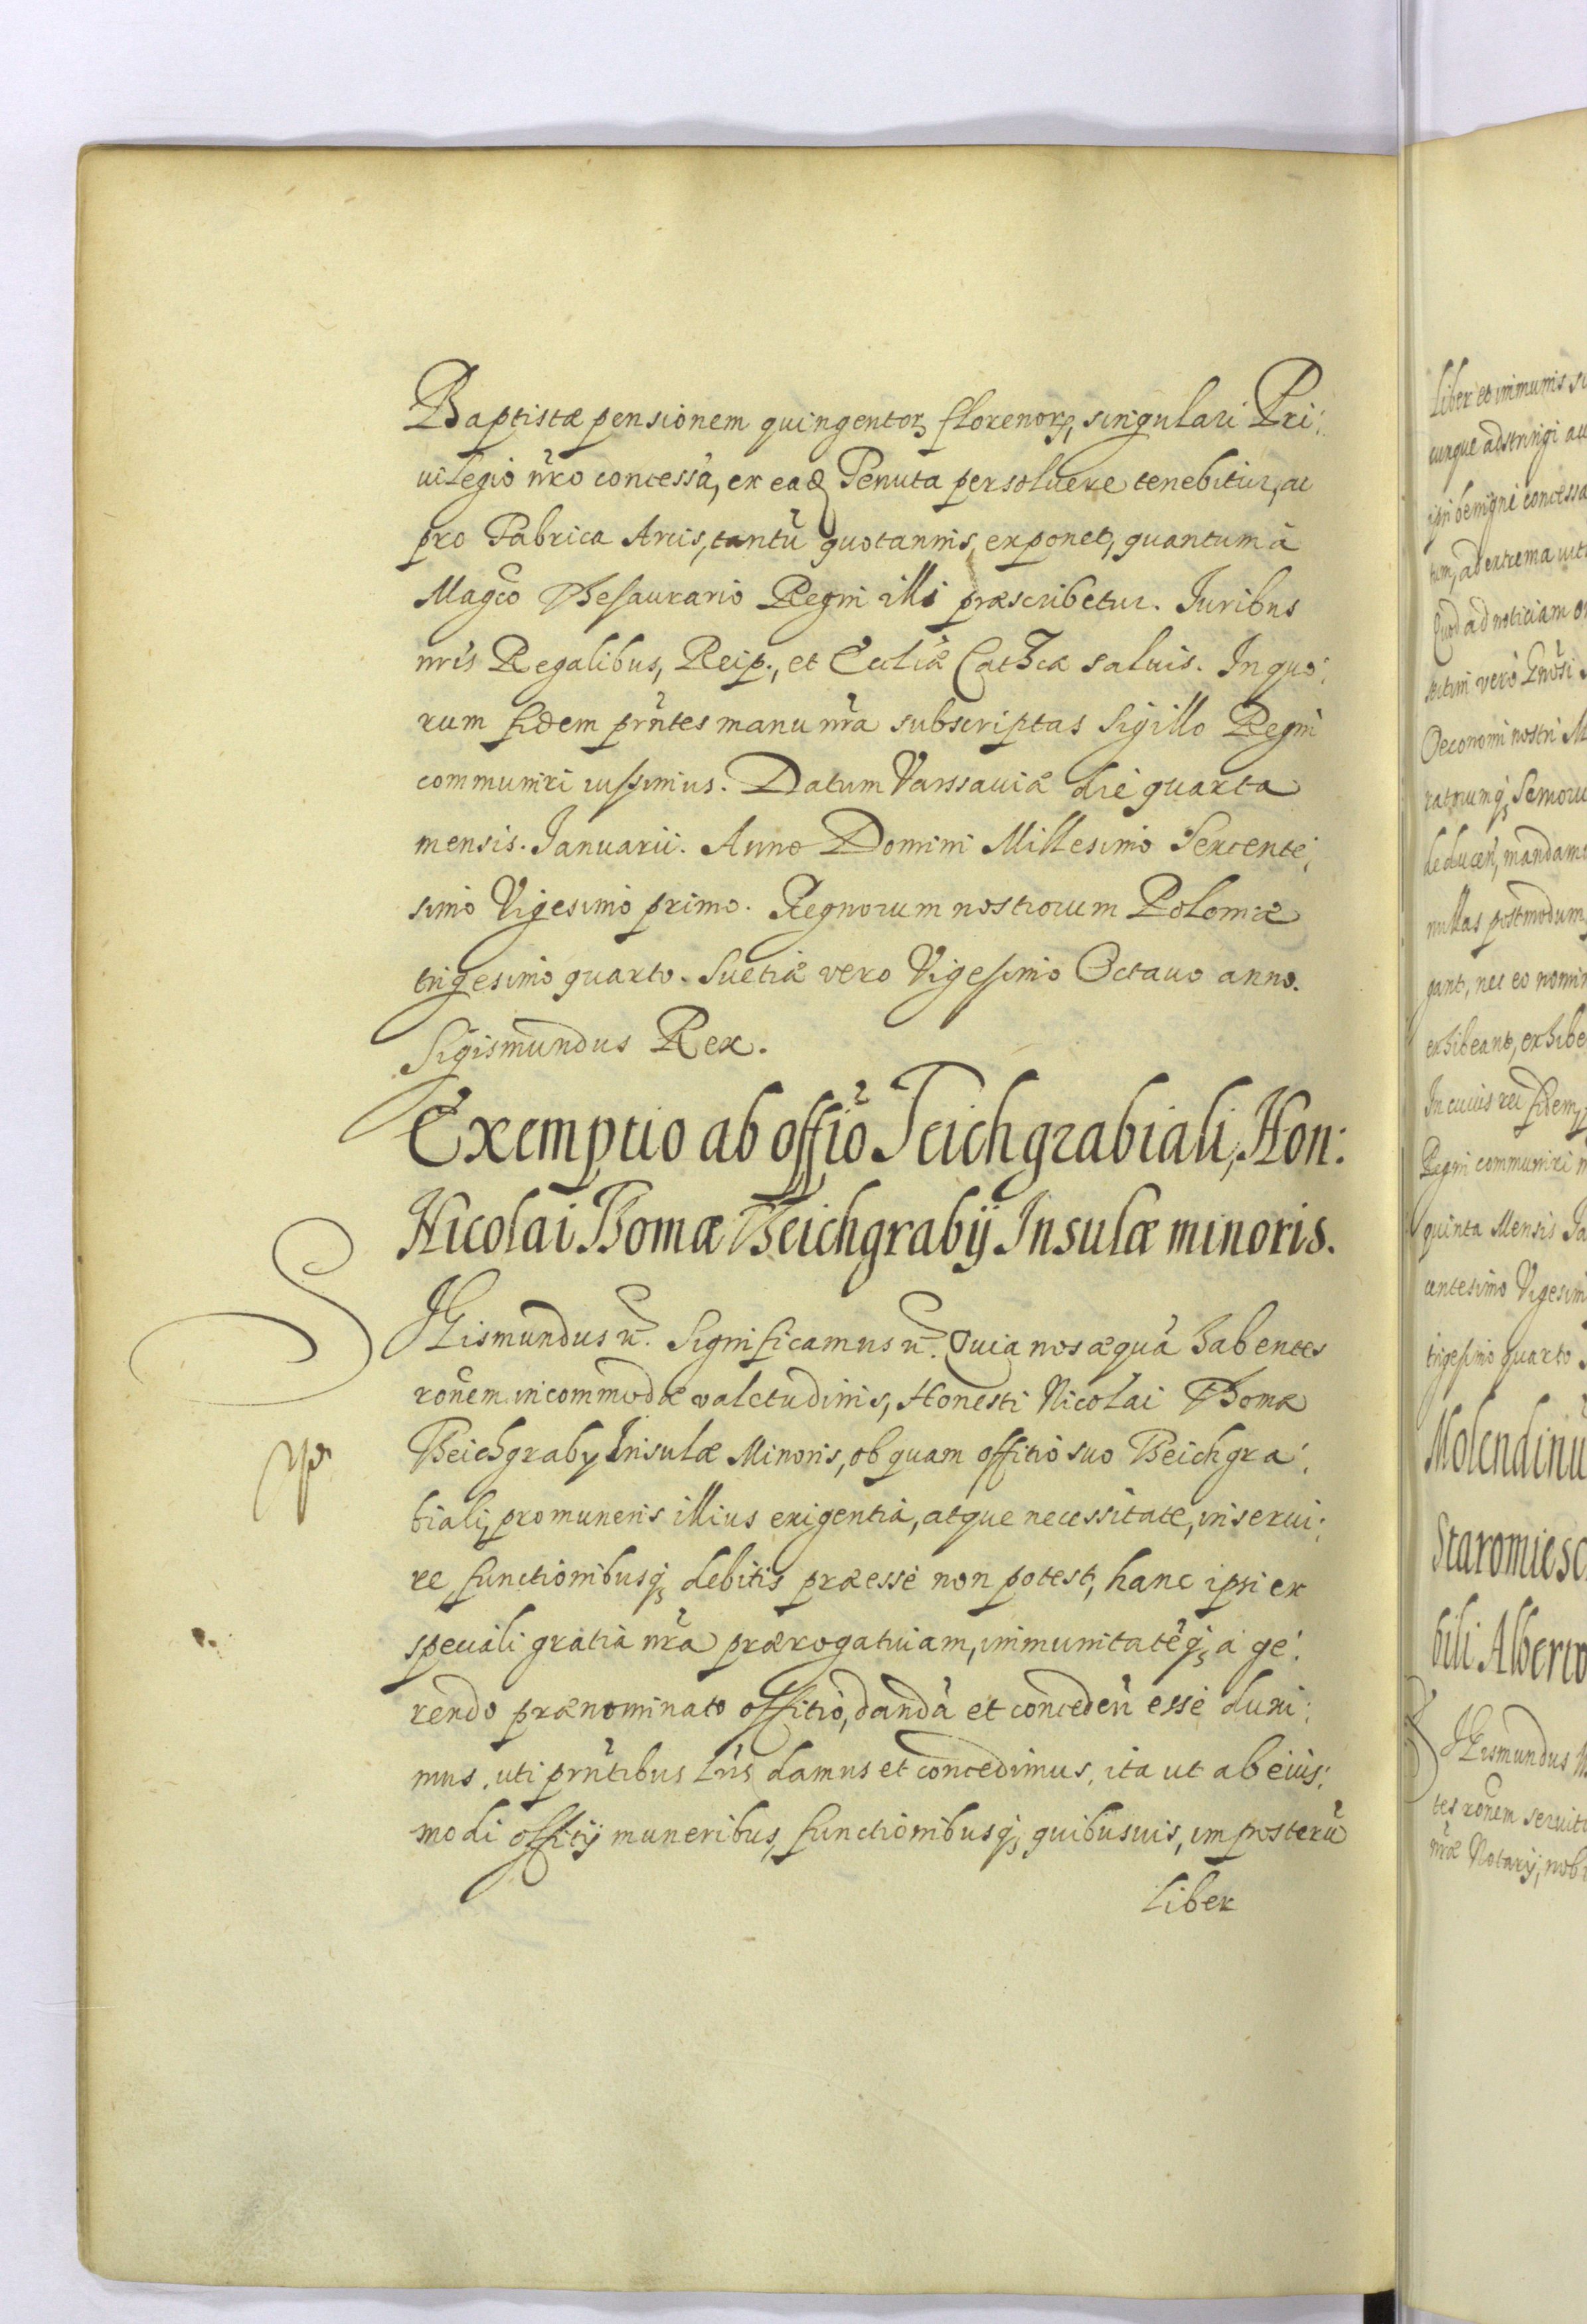 Baptistæ pensionem quingentorꝫ florenorꝫ, singulari Pri:
uilegio nr̃o concessã, ex eadꝫ Tenuta persoluere tenebitur, ac
pro Fabrica Arcis, tantũ quotannis, exponet, quantum à
Magc̃o Thesaurario Regni illi præscribetur. Iuribus
nr̃is Regalibus, Reip., et Eccliæ̃ Cathcæ saluis. In quo:
rum fidem pr̃ntes manu nr̃a subscriptas Sigillo Regni
communiri iussimus. Datum Varssauiæ die quarta
mensis. Ianuarii. Anno Domini Millesimo Sexcente:
simo Vigesimo primo. Regnorum nostrorum Poloniæ
trigesimo quarto. Suetiæ vero Vigesimo Octauo anno.
Sigismundus Rex.
Exemptio ab offĩo Teichgrabiali, Hon:
Nicolai Thomæ Theichgrabij Insulæ minoris.
SIGismundus etc̃. Significamus etc̃. Quia nos æquã habentes
rõnem incommodæ valetudinis, Honesti Nicolai Thomæ
Theichgraby Insulæ Minoris, ob quam offitio suo Theichgra:
biali, pro muneris illius exigentia, atque necessitate, inserui:
re, functionibusqꝫ debitis præesse non potest, hanc ipsi ex
speciali gratia nr̃a prærogatiuam, immunitatẽqꝫ a ge:
rendo prænominato offitio, dandã et conceden̂ esse duxi:
mus, uti pr̃ntibus Lr̃is damus et concedimus, ita ut ab eius:
modi offitij muneribus, functionibusqꝫ quibusuis, imposterũ
liber
Liber et immunis
ipsi benigni concessa
Quod ad notitiam
Oeconomi nostri
nullas postmodum
gant, nec eo
exhibeant,
In cuius rei fidem
Regni communiri
quinta Mensis
centesimo
trigesimo quarto
Molendinũ
bili Alberto
SIGismundus
tes rõnem
nr̃æ Notarij,